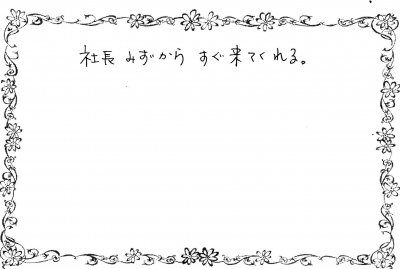 社長 みずから すぐ来てくれる。